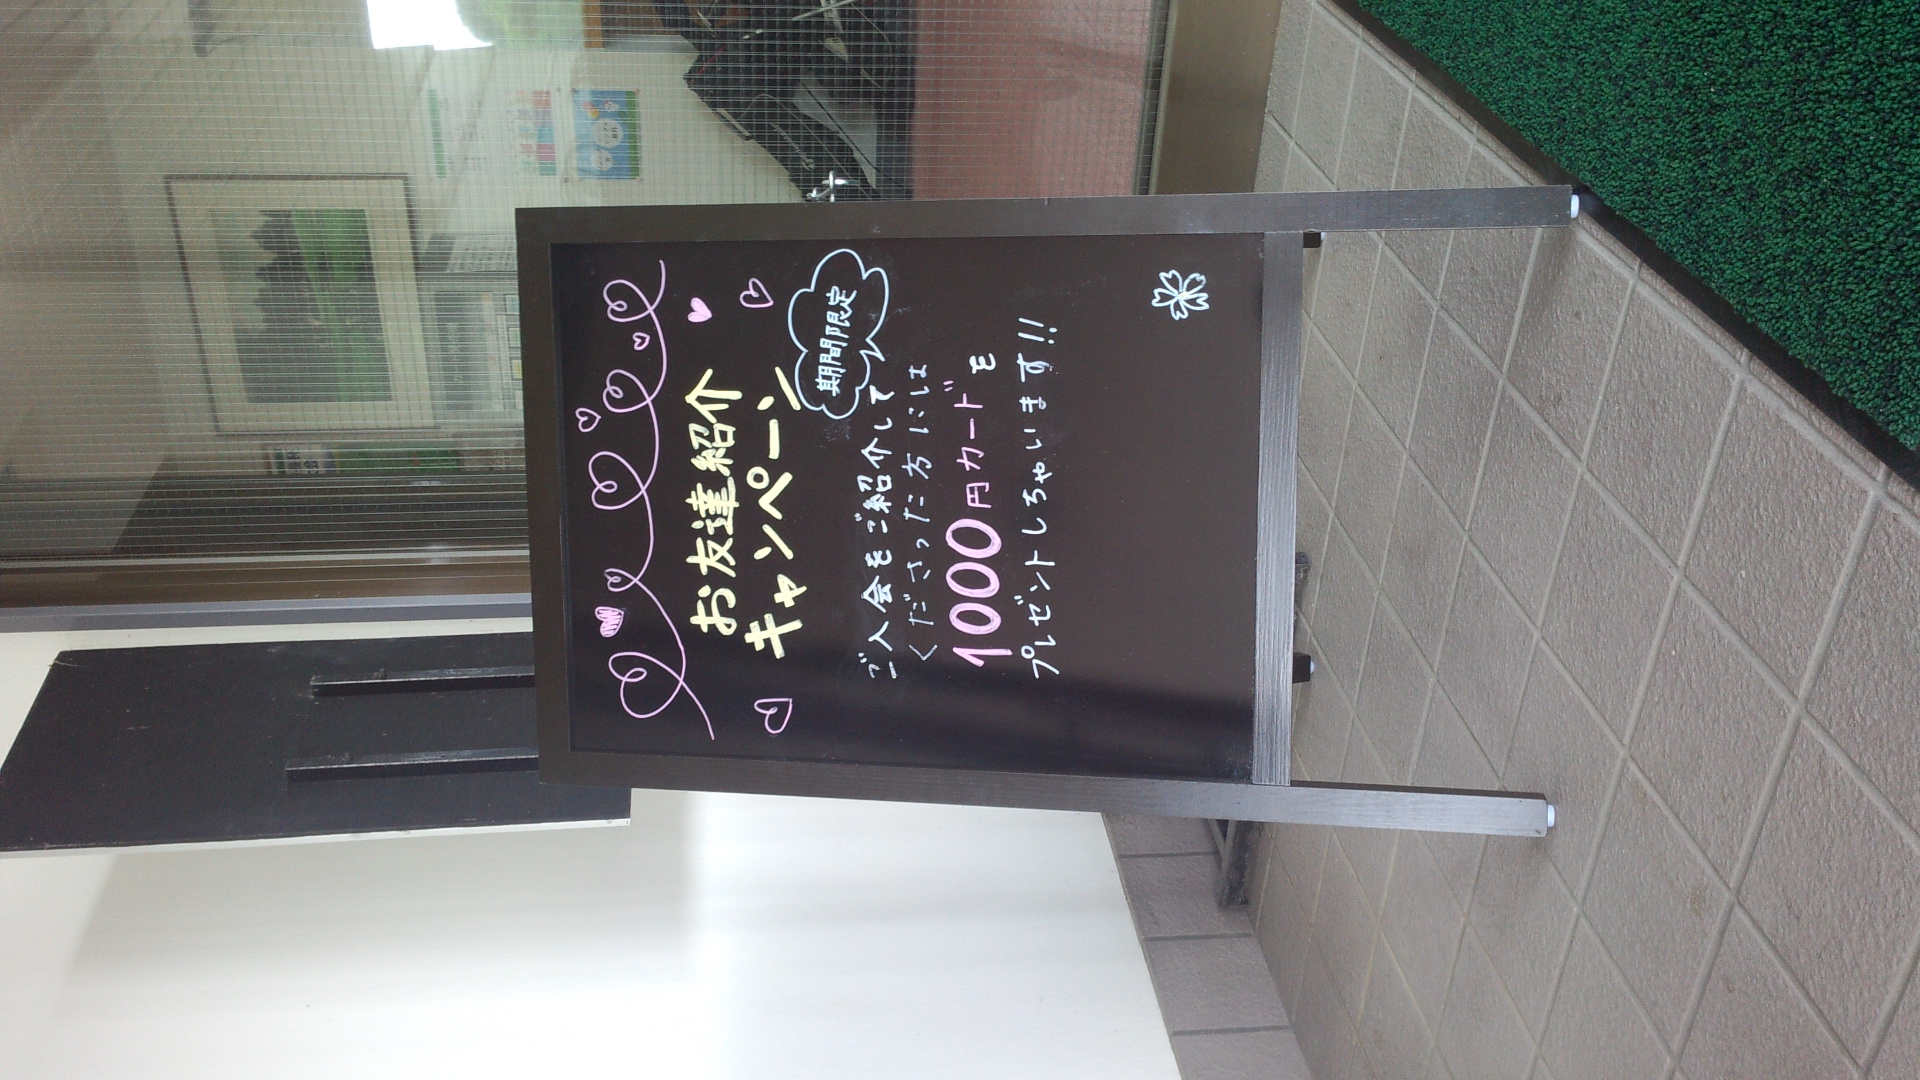 お友達紹介
キャンペーン
期間限定
ご入会をご紹介して
くださった方には
1000円カードを
プレゼントしちゃいます!!